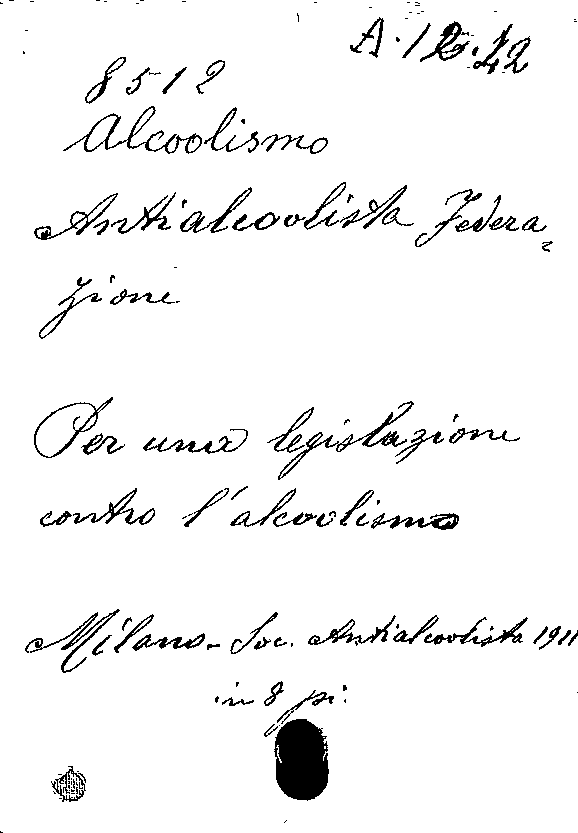 A.12.42
8512
Alcoolismo
Antialcoolista Federa-
zione
Per una legislazione
contro l'alcoolismo
Milano - Soc. Antialcoolista 1911
in 8 pi.